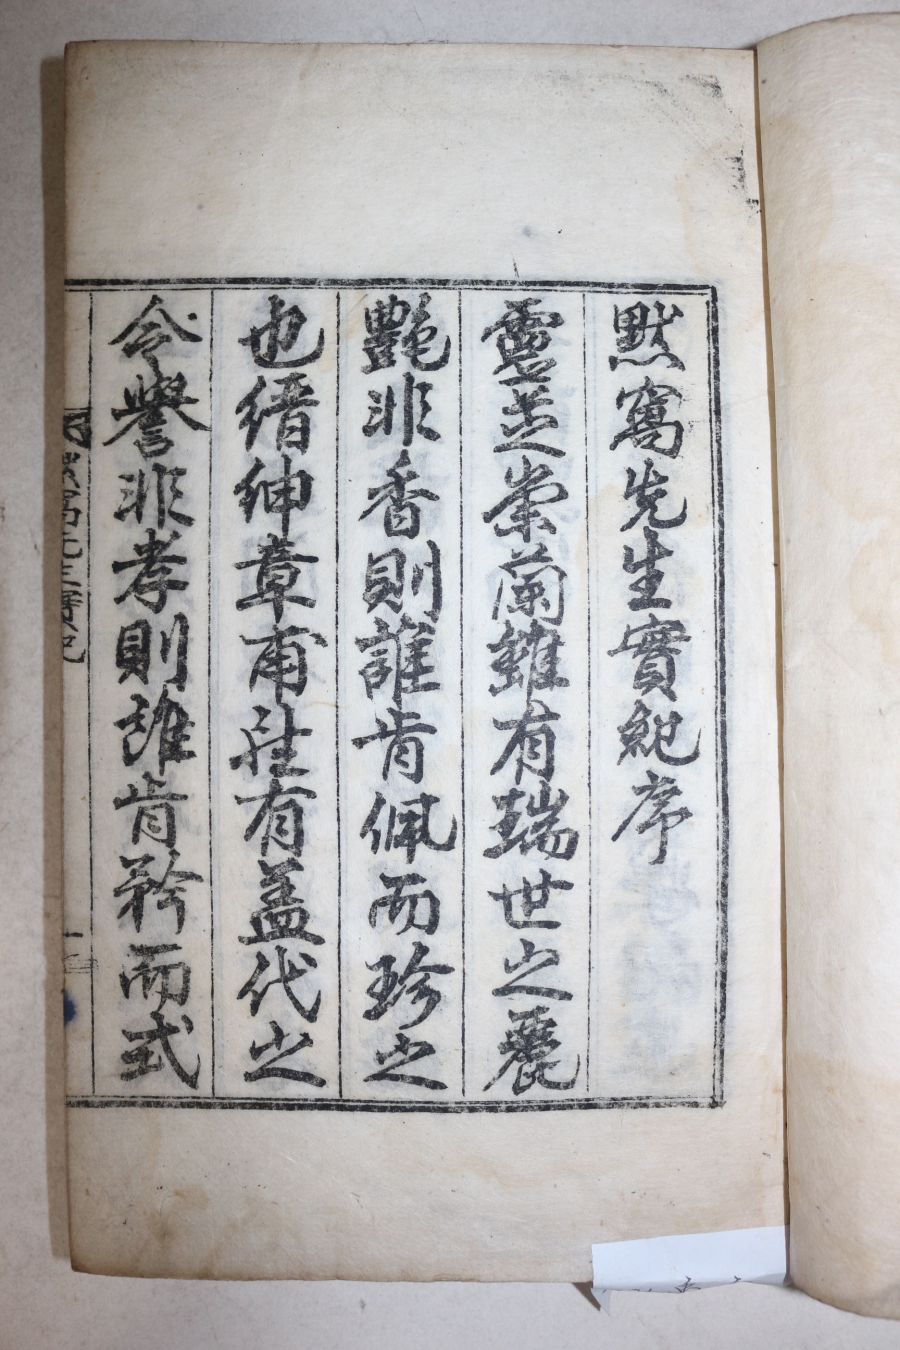 默窩先生實紀序
靈芝崇蘭雖有瑞世之麗
艶非香則誰肯佩而珍之
也縉紳章甫雖有盖代之
令譽非孝則誰肯矜而式
默窩先生實紀
一